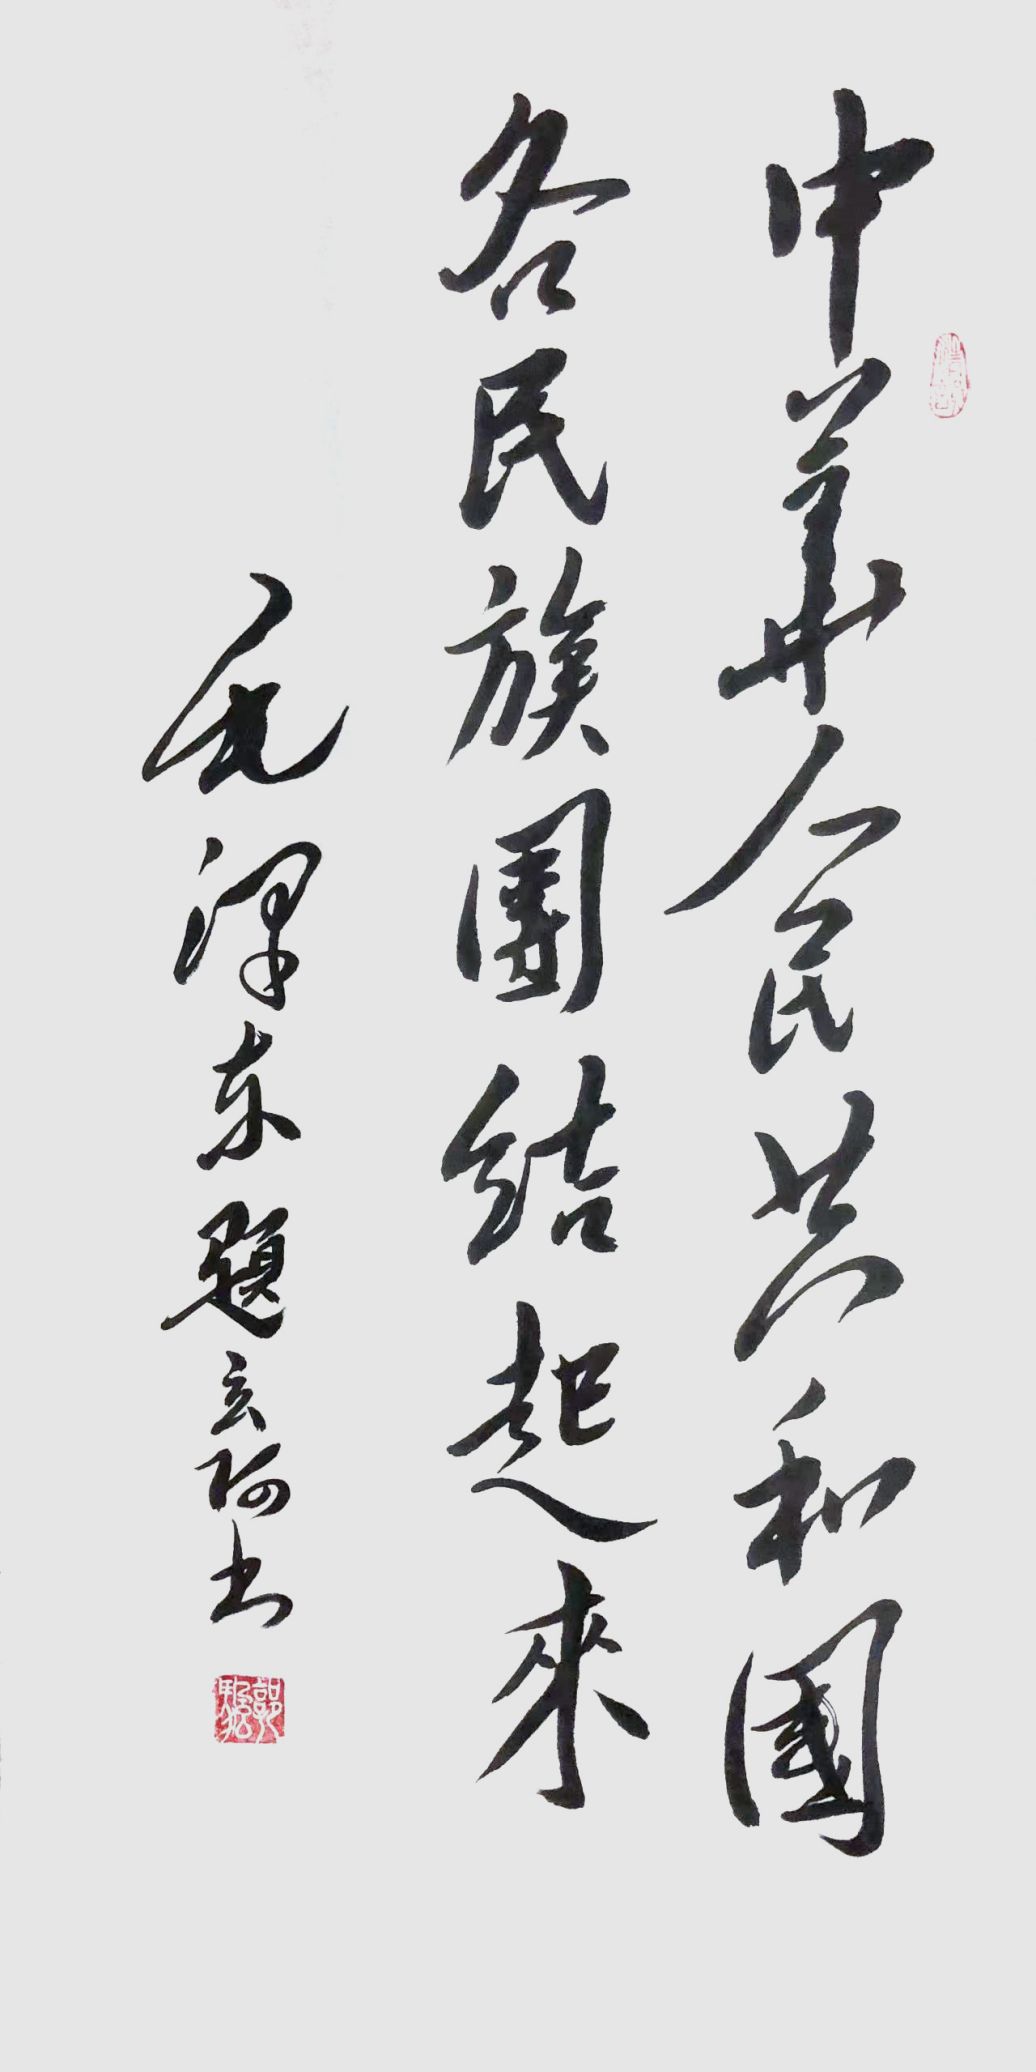 中華人民共和國
各民族團結起來
毛澤东題玄阿书